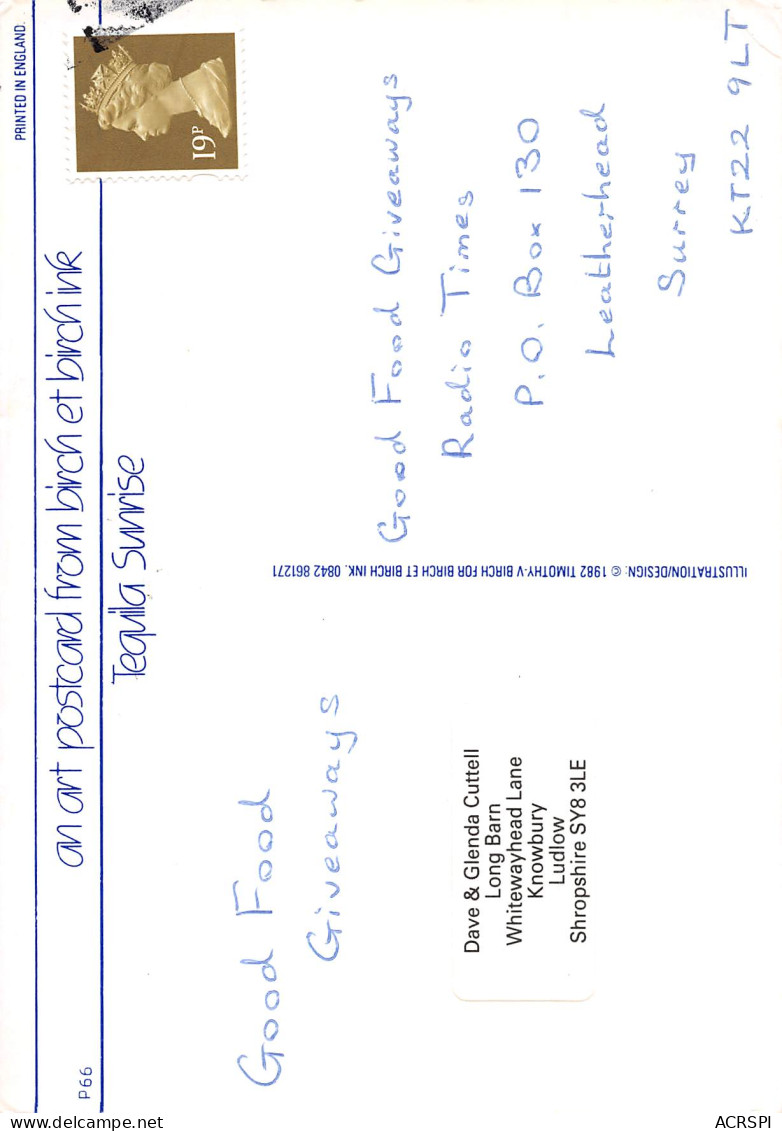 PRINTED IN ENGLAND.
an art postcard from birch et birch ink
P66
Tequila Sunrise
19P
Good Food
Giveaways
Dave & Glenda Cuttell
Long Barn
Whitewayhead Lane
Knowbury
Ludlow
Shropshire SY8 3LE
ILLUSTRATION/DESIGN: © 1982 TIMOTHY-V BIRCH FOR BIRCH ET BIRCH INK. 0842 861271
Good Food Giveaways
Radio Times
P.O. Box 130
Leatherhead
Surrey
KT22 9LT
ACRSPI